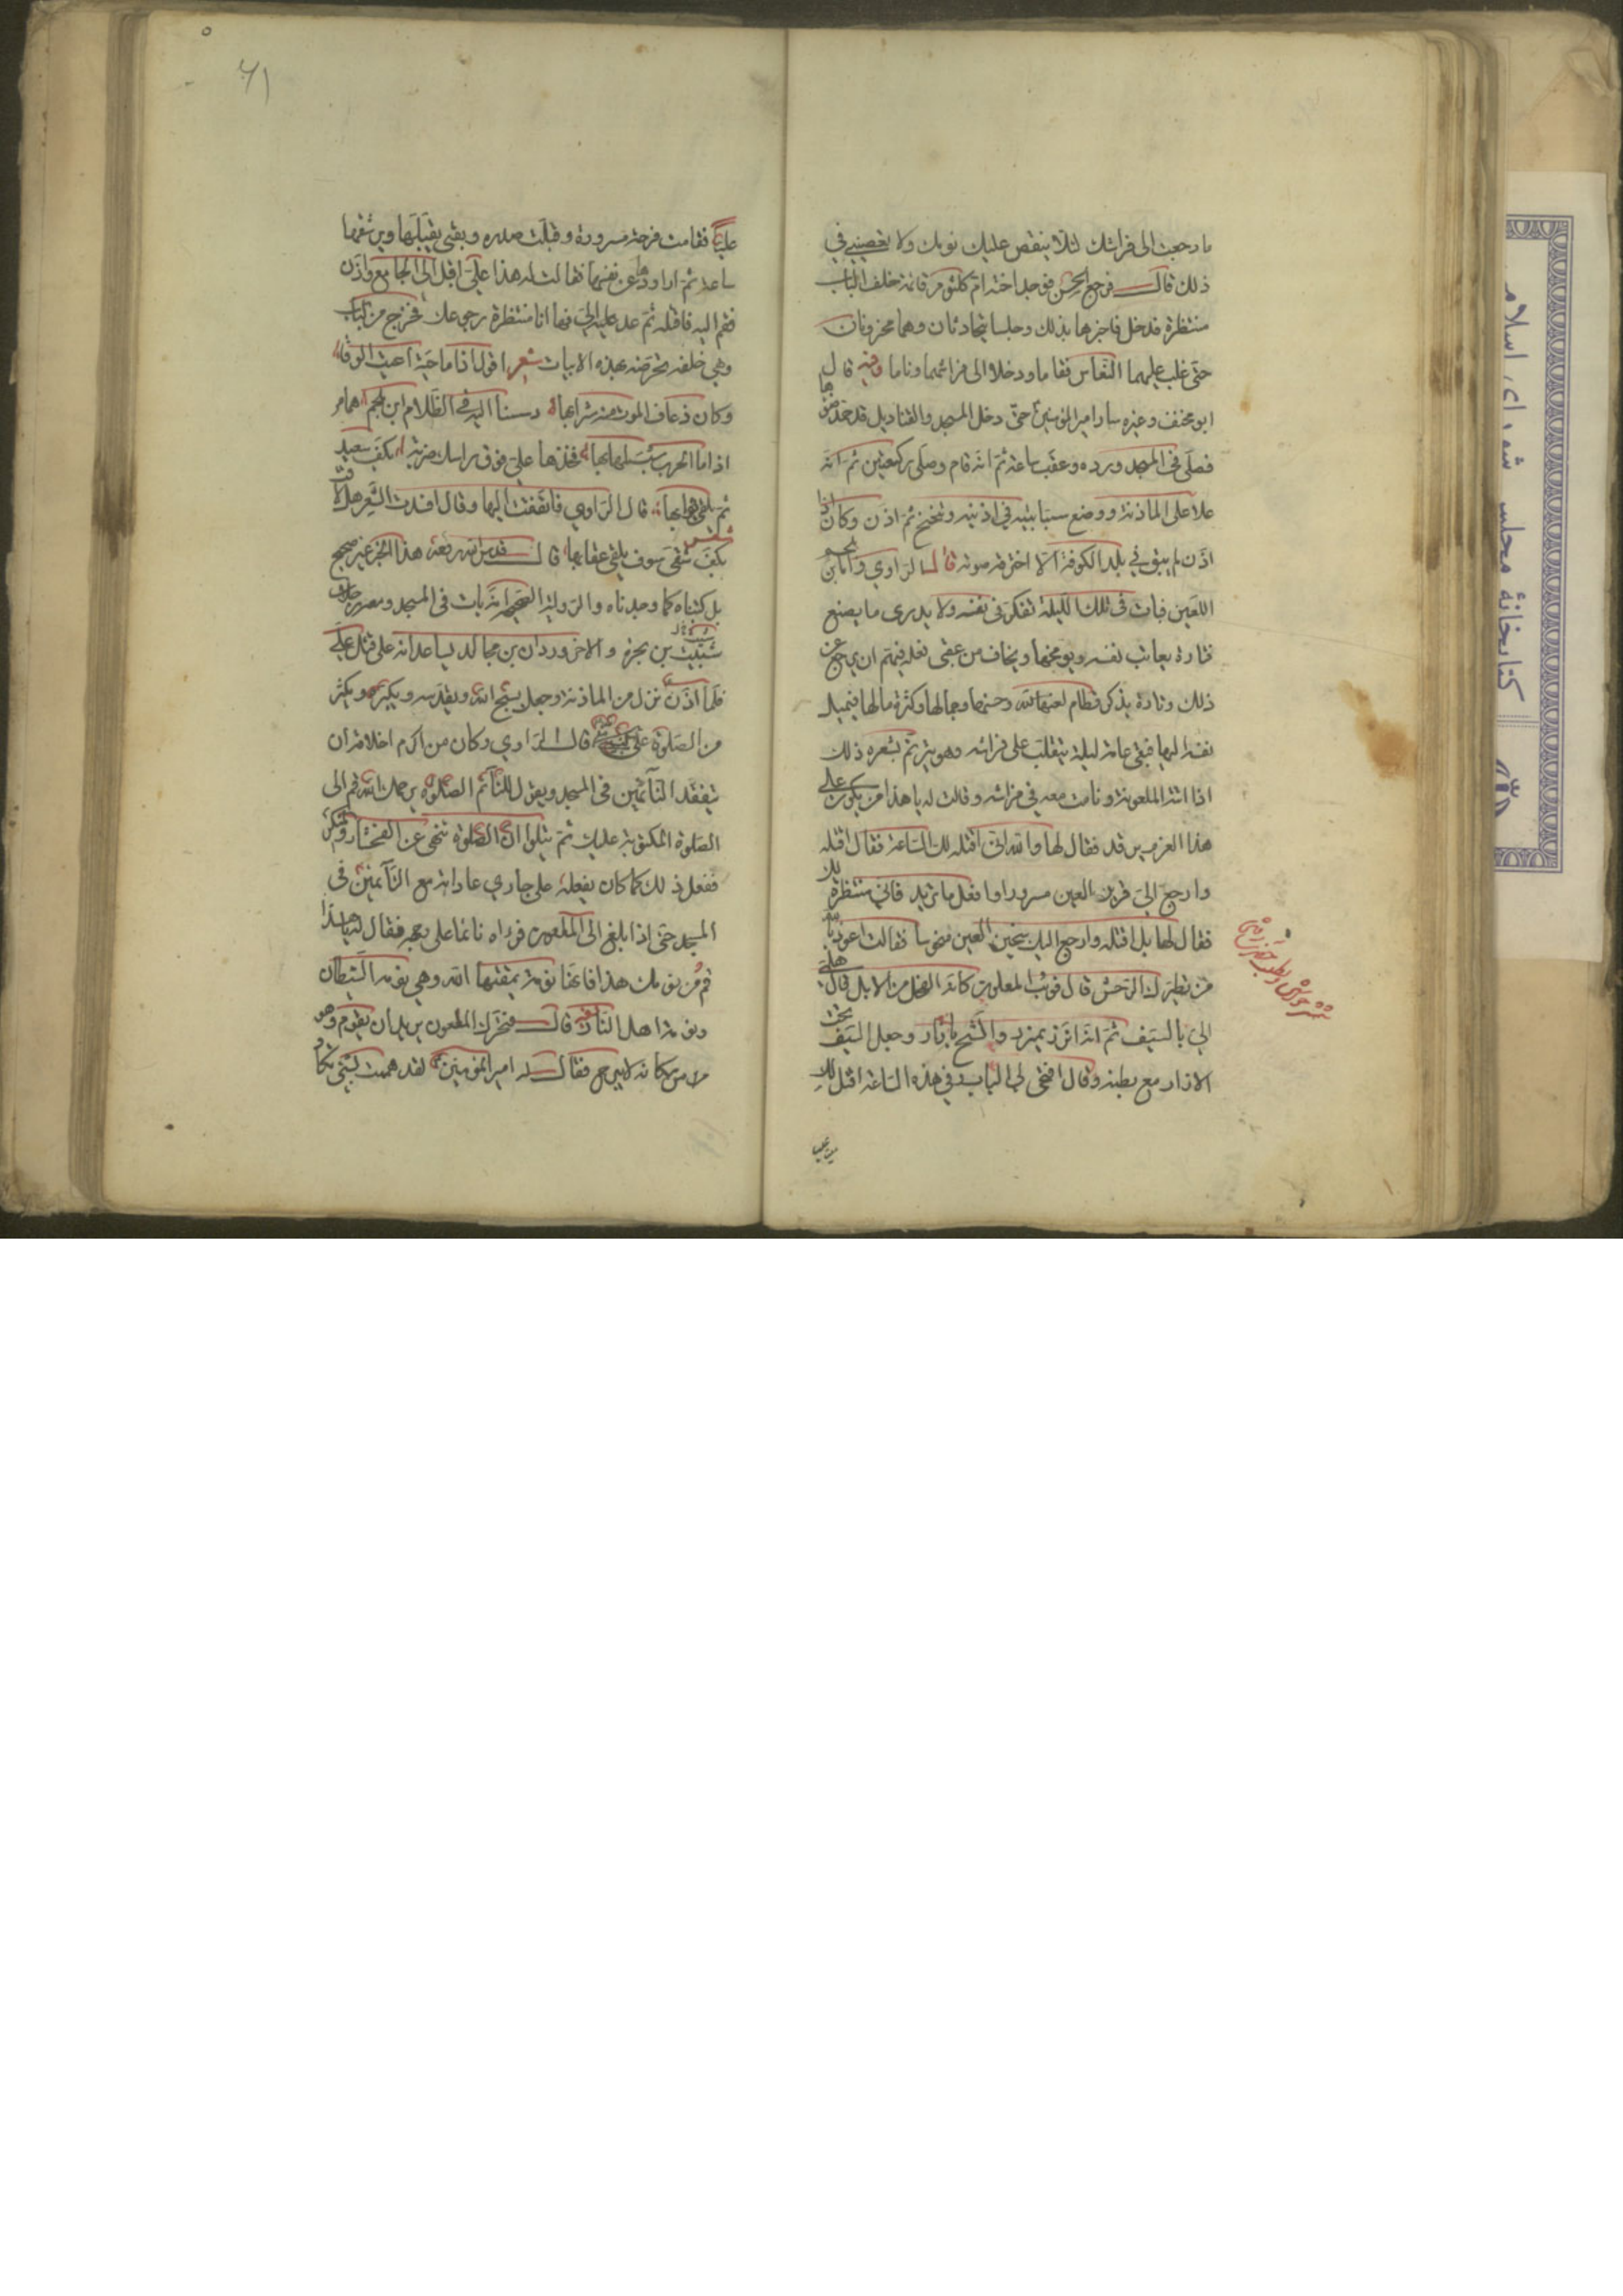 ما رجعت الى فراشك لئلا ينقص عليك نومك ولا تعصيني في
ذلك قال فرجع الحسن فوجد اخته ام كلثوم قائمة خلف الباب
منتظرة فدخل فاخبرها بذلك وجلسا يتحادثان وهما محزونان
حتى غلب عليهما النعاس فقاما ودخلا الى فراشهما وناما وفيه قال
ابو مخنف وغيره سار امير المؤمنين حتى دخل المسجد والقناديل قد خمد ضوءها
فصلى في المسجد ورده وعقب ساعة ثم انه قام وصلى ركعتين ثم انه
علا على الماذنة ووضع سبابتيه في اذنيه وتنحنح ثم اذن وكان اذا
اذن لم يبق في بلد الكوفة الا اخترقه صوته قال الراوي واما بن ملجم
اللعين فبات في تلك الليلة تفكر في نفسه ولا يدرى ما يصنع
فتارة يعاتب نفسه ويوبخها ويخاف من عقبى فعله فيهم ان يرجع عن
ذلك وتارة يذكر قطام لعنها الله وحسنها وجمالها وكثرة مالها فيميل
نفسه اليها فبقى عامة ليلة يتقلب على فراشه وهو يترنم بشعره ذلك
اذا اتته الملعونة ونامت معه في فراشه وقالت له يا هذا من يكون على
هذا العزم يرقد فقال لها والله انى اقتله لك الساعة فقال اقتله
وارجع الي قرير العين مسرورا وافعل ما تريد فاني منتظرة لك
فقال لها بل اقتله وارجع اليك سخين العين منحوسا فقالت اعوذ بالله
من تطيرك الوحش قال فوثب الملعون كانه الفحل من الابل قال هلمى
الي بالسيف ثم انه اتزر بميزر واتشح بازار وجعل السيف تحت
الازار مع بطنه وقال افتحى لى الباب ففي هذه الساعة اقتل لك
۶۱
عليا فقامت فرحة مسرورة وقبلت صدره وبقى يقبلها ويرشفها
ساعة ثم اراودها عن نفسها فقالت له هذا علي اقبل الى الجامع واذن
فقم اليه فاقتله ثم عد علي الي فها انا منتظرة رجوعك فخرج من الباب
وهي خلفه تحرضه بهذه الابيات شعر اقول اذا ما حية اعيت الرقا
وكان ذعاف الموت منه شرابها دسسنا اليه في الظلام ابن ملجم همام
اذا ما الحرب شب لهابها فخذها علي فوق راسك ضربة بكف سعيد
ثم يلقى ثوابها قال الراوي فالتفت اليها وقال افسدت الشعر هلا قلت
بكف شقى سوف يلقى عقابها قال قدس الله رمسه هذا الخبر غير صحيح
بل كتبناه كما وجدناه والرواية الصحيحة انه بات في المسجد ومعه رجلان
شبيب بن بحرة والاخر وردان بن مجالد يساعدانه على قتل علي
فلما اذن نزل من الماذنة وجعل يسبح الله ويقدسه ويكبره ويكثر
من الصلوة على النبي قال الراوي وكان من اكرم اخلاقه ان
يتفقد النآئمين في المسجد ويقول للنآئم الصلوة يرحمك الله قم الى
الصلوة المكتوبة عليك ثم يتلوا ان الصلوة تنهى عن الفحشاء والمنكر
ففعل ذلك كما كان يفعله على جاري عاداته مع النآئمين في
المسجد حتى اذا بلغ الى الملعون فراه نائما على وجهه فقال له يا هذا
قم من نومك هذا فانها نومة يمقتها الله وهي نومة الشيطان
ونومة اهل النار قال فتحرك الملعون يريد ان يقوم وهو
من مكانه لا يبرح فقال له امير المؤمنين لقد هممت بشئ تكاد